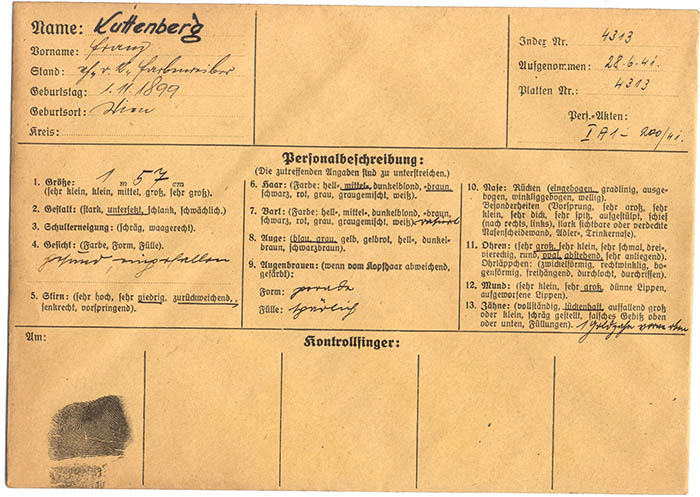 Name: Kuttenberg
Vorname: Franz
Stand: Farbenreiber
Geburtstag: 1. 11. 1899
Geburtsort: Wien
Kreis:
Index Nr. 4313
Aufgenommen: 28.6.41.
Platten Nr. 4313
Pers.-Akten:
I A1 - 200/41.
Personalbeschreibung:
(Die zutreffenden Angaben sind zu unterstreichen.)
1. Größe: 1 m 57 cm
(sehr klein, klein, mittel, groß, sehr groß).
2. Gestalt: (stark, untersetzt, schlank, schwächlich).
3. Schulterneigung: (schräg, waagerecht).
4. Gesicht: (Farbe, Form, Fülle).
gesund, eingefallen
5. Stirn: (sehr hoch, sehr niedrig, zurückweichend,
senkrecht, vorspringend).
6. Haar: (Farbe: hell-, mittel-, dunkelblond, -braun,
schwarz, rot, grau, graugemischt, weiß).
7. Bart: (Farbe: hell-, mittel-, dunkelblond, -braun,
schwarz, rot, grau, graugemischt, weiß). rasiert
8. Auge: (blau, grau, gelb, gelbrot, hell-, dunkel-
braun, schwarzbraun, schielend).
9. Augenbrauen: (wenn vom Kopfhaar abweichend,
gefärbt):
Form: gerade
Fülle: spärlich
10. Nase: Rücken (eingebogen, gradlinig, ausge-
bogen, winkliggebogen, wellig).
Besonderheiten (Vorsprung, sehr groß, sehr
klein, sehr dick, sehr spitz, aufgestülpt, schief
(nach rechts, links), stark sichtbare oder verdeckte
Nasenscheidewand, Adler-, Trinkernase).
11. Ohren: (sehr groß, sehr klein, sehr schmal, drei-,
viereckig, rund, oval, abstehend, sehr anliegend).
Ohrläppchen: (zwickelförmig, rechtwinklig, bo-
genförmig, freihängend, durchlocht, durchrissen).
12. Mund: (sehr klein, sehr groß, dünne Lippen,
aufgeworfene Lippen).
13. Zähne: (vollständig, lückenhaft, auffallend groß
oder klein, schräg gestellt, falsches Gebiß oben
oder unten, Füllungen). 1 Goldzahn vorne oben
Am:
Kontrollfinger: